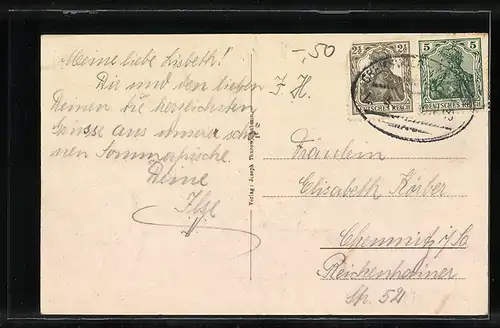 -,50
2½ 2½
DEUTSCHES REICH
5 5
DEUTSCHES REICH
Meine liebe Lisbeth!
Dir und den lieben
Deinen die herzlichsten
Grüsse aus unserer schö
nen Sommerfrische.
Deine
Ilse
Verlag: Joseph
F. H.
Fräulein
Elisabeth Körber
Chemnitz i/Sa
Reichenhainer
Str. 52